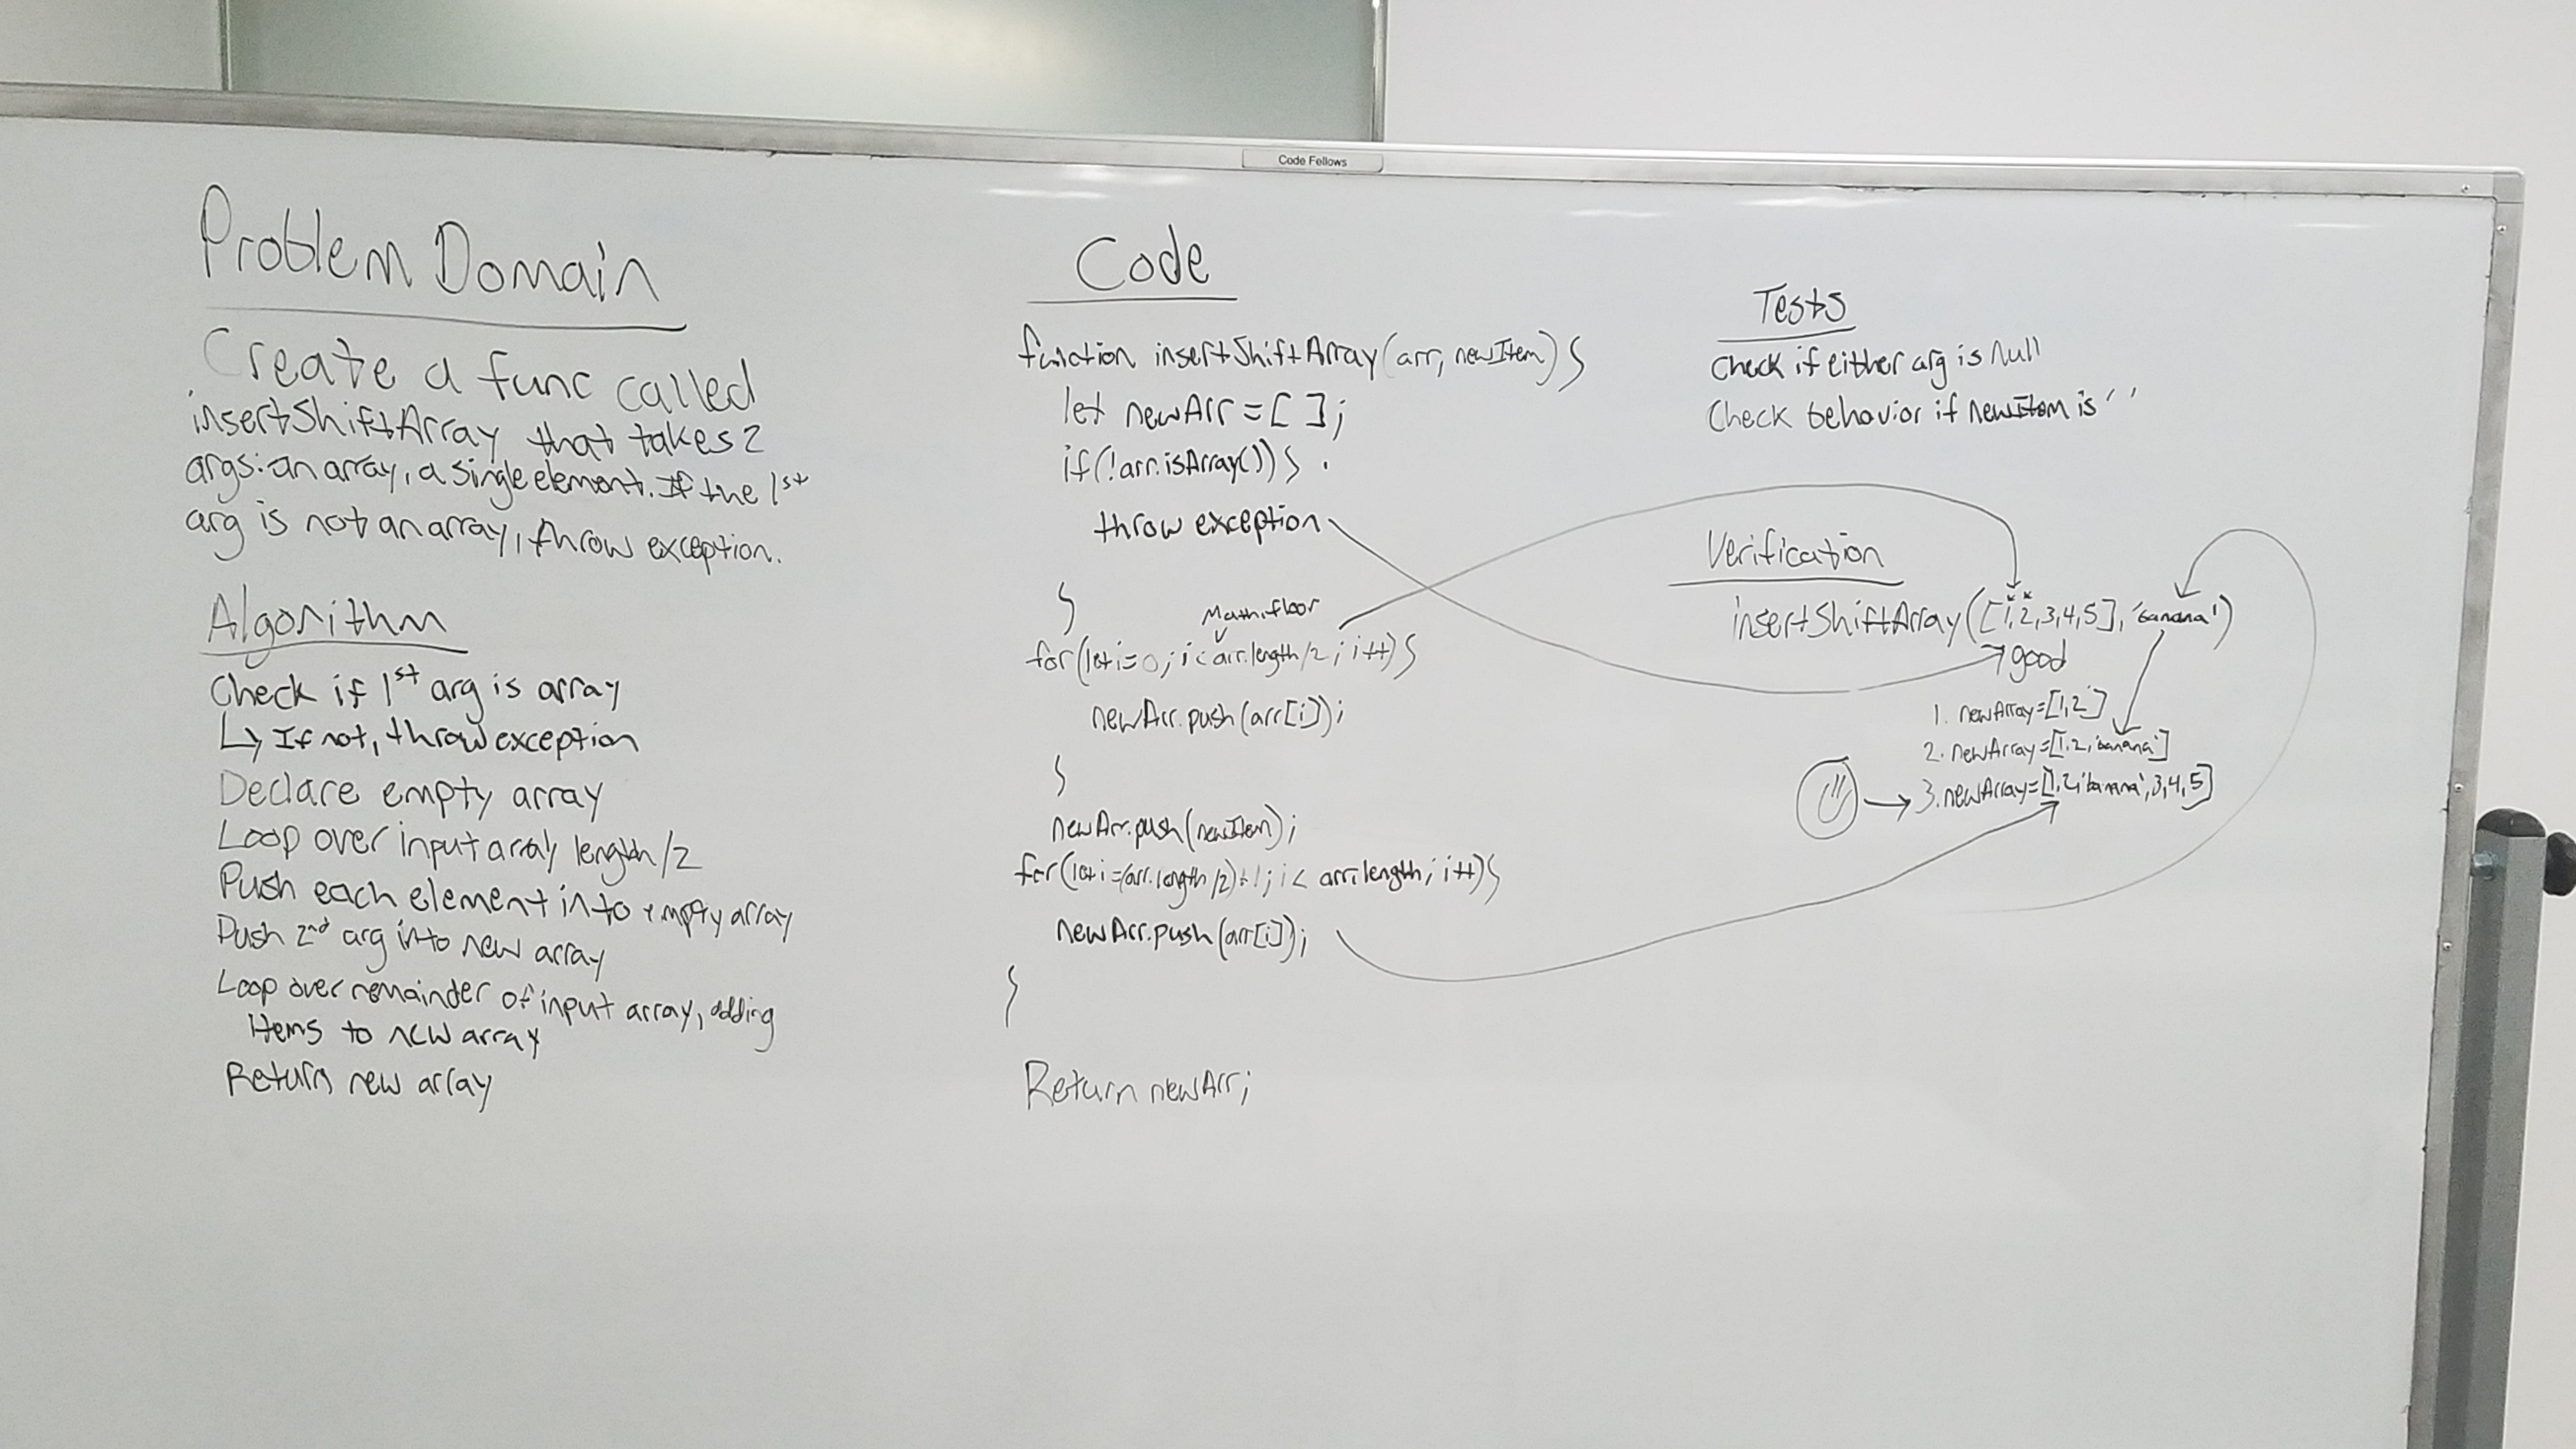 Code Fellows
Problem Domain
Create a func called
insertShiftArray that takes 2
args: an array, a single element. If the 1st
arg is not an array, throw exception.
Algorithm
Check if 1st arg is array
↳ If not, throw exception
Declare empty array
Loop over input array length/2
Push each element into empty array
Push 2nd arg into new array
Loop over remainder of input array, adding
Items to new array
Return new array
Code
function insertShiftArray(arr, newItem) {
let newArr = [ ];
if(!arr.isArray()) {
throw exception
}
Math.floor
for(let i=0; i < arr.length/2; i++) {
newArr.push(arr[i]);
}
newArr.push(newItem);
for(let i=(arr.length/2)+1; i < arr.length; i++) {
newArr.push(arr[i]);
}
Return newArr;
Tests
Check if either arg is Null
Check behavior if newItem is ' '
Verification
insertShiftArray([1,2,3,4,5], 'banana')
good
1. newArray=[1,2]
2. newArray=[1,2,'banana']
3. newArray=[1,2,'banana',3,4,5]